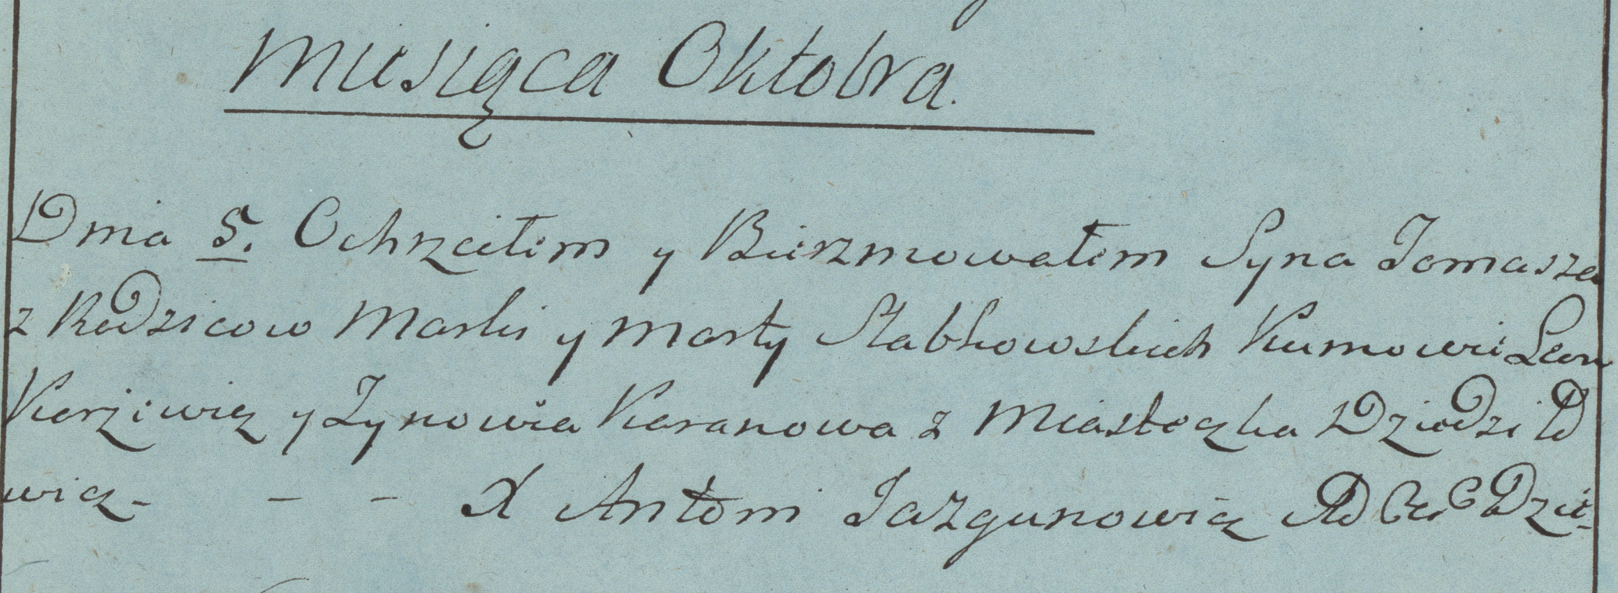 Miesiąca Oktobra.
Dnia 5. Ochrzciłem y Bierzmowałem Syna Tomasza
z Rodzicow Marki y Marty Słabkowskich Kumowie Leon
Karżewicz y Zynowia Karanowa z Miasteczka Dziedził
wicz - - - X Antoni Jazgunowicz